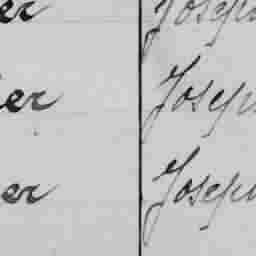 er Joseph
er Joseph
er Joseph